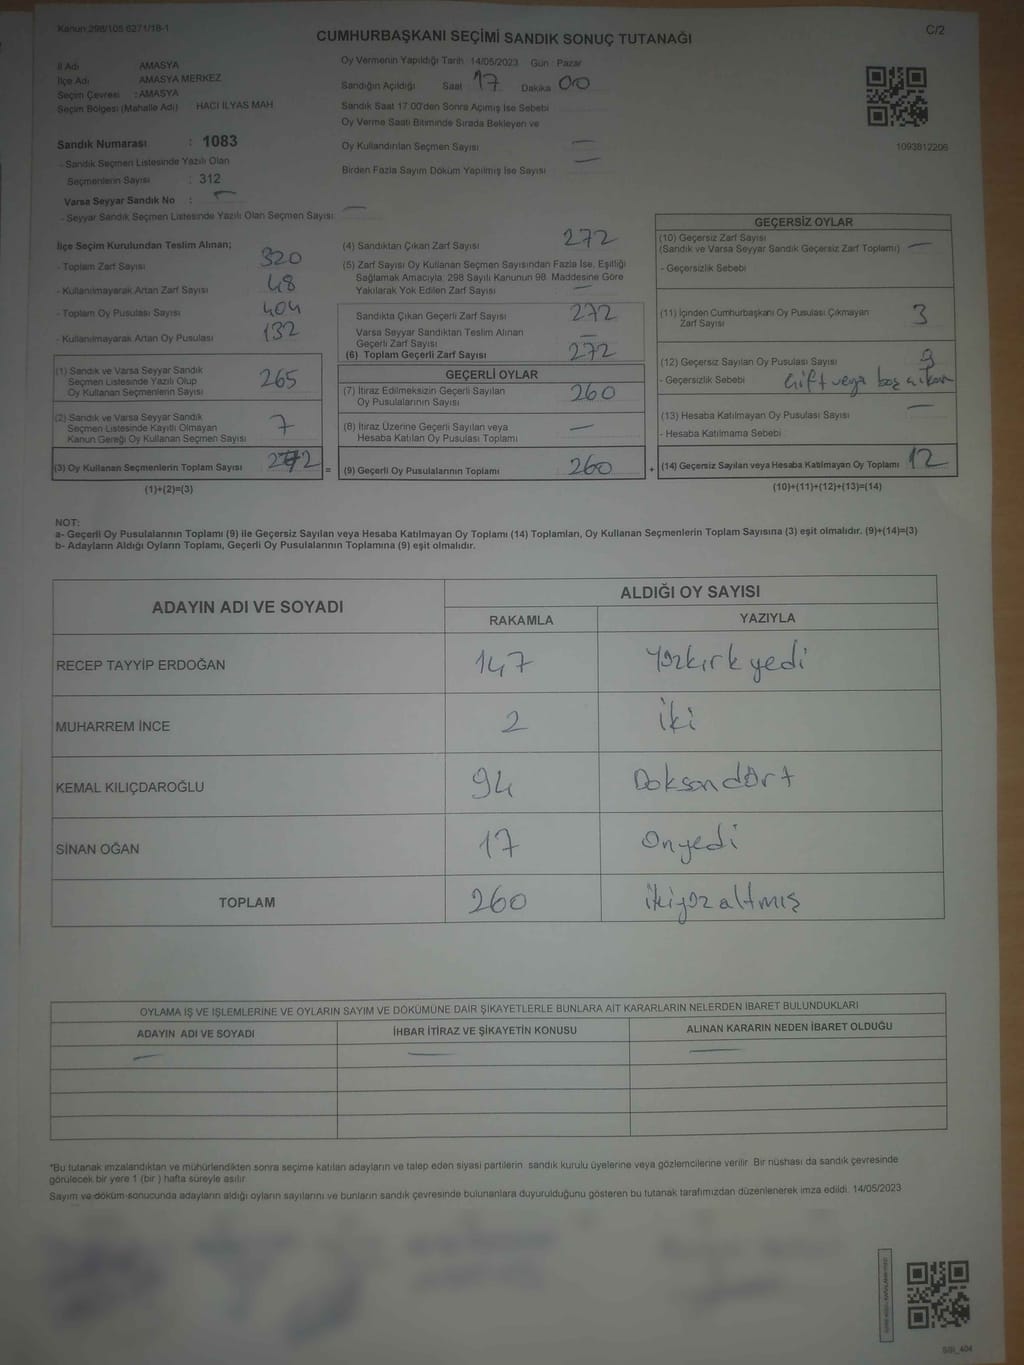 Kanun:298/105 6271/18-1
C/2
CUMHURBAŞKANI SEÇİMİ SANDIK SONUÇ TUTANAĞI
İl Adı AMASYA
İlçe Adı AMASYA MERKEZ
Seçim Çevresi : AMASYA
Seçim Bölgesi (Mahalle Adı) HACI İLYAS MAH
Sandık Numarası : 1083
- Sandık Seçmen Listesinde Yazılı Olan
Seçmenlerin Sayısı : 312
Varsa Seyyar Sandık No : —
- Seyyar Sandık Seçmen Listesinde Yazılı Olan Seçmen Sayısı : —
Oy Vermenin Yapıldığı Tarih : 14/05/2023 Gün : Pazar
Sandığın Açıldığı Saat 17 Dakika 00
Sandık Saat 17:00'den Sonra Açımış İse Sebebi
Oy Verme Saati Bitiminde Sırada Bekleyen ve
Oy Kullandırılan Seçmen Sayısı —
Birden Fazla Sayım Döküm Yapılmış İse Sayısı —
1093812206
İlçe Seçim Kurulundan Teslim Alınan;
- Toplam Zarf Sayısı 320
- Kullanılmayarak Artan Zarf Sayısı 48
- Toplam Oy Pusulası Sayısı 404
- Kullanılmayarak Artan Oy Pusulası 132
(1) Sandık ve Varsa Seyyar Sandık
Seçmen Listesinde Yazılı Olup
Oy Kullanan Seçmenlerin Sayısı 265
(2) Sandık ve Varsa Seyyar Sandık
Seçmen Listesinde Kayıtlı Olmayan
Kanun Gereği Oy Kullanan Seçmen Sayısı 7
(3) Oy Kullanan Seçmenlerin Toplam Sayısı 272 =
(1)+(2)=(3)
(4) Sandıktan Çıkan Zarf Sayısı 272
(5) Zarf Sayısı Oy Kullanan Seçmen Sayısından Fazla İse, Eşitliği
Sağlamak Amacıyla; 298 Sayılı Kanunun 98. Maddesine Göre
Yakılarak Yok Edilen Zarf Sayısı —
Sandıkta Çıkan Geçerli Zarf Sayısı 272
Varsa Seyyar Sandıktan Teslim Alınan
Geçerli Zarf Sayısı —
(6) Toplam Geçerli Zarf Sayısı 272
GEÇERLİ OYLAR
(7) İtiraz Edilmeksizin Geçerli Sayılan
Oy Pusulalarının Sayısı 260
(8) İtiraz Üzerine Geçerli Sayılan veya
Hesaba Katılan Oy Pusulası Toplamı —
(9) Geçerli Oy Pusulalarının Toplamı 260 +
GEÇERSİZ OYLAR
(10) Geçersiz Zarf Sayısı
(Sandık ve Varsa Seyyar Sandık Geçersiz Zarf Toplamı) —
- Geçersizlik Sebebi
(11) İçinden Cumhurbaşkanı Oy Pusulası Çıkmayan
Zarf Sayısı 3
(12) Geçersiz Sayılan Oy Pusulası Sayısı 9
- Geçersizlik Sebebi Çift veya boş çıkan
(13) Hesaba Katılmayan Oy Pusulası Sayısı —
- Hesaba Katılmama Sebebi
(14) Geçersiz Sayılan veya Hesaba Katılmayan Oy Toplamı 12
(10)+(11)+(12)+(13)=(14)
NOT:
a- Geçerli Oy Pusulalarının Toplamı (9) ile Geçersiz Sayılan veya Hesaba Katılmayan Oy Toplamı (14) Toplamları, Oy Kullanan Seçmenlerin Toplam Sayısına (3) eşit olmalıdır. (9)+(14)=(3)
b- Adayların Aldığı Oyların Toplamı, Geçerli Oy Pusulalarının Toplamına (9) eşit olmalıdır.
ADAYIN ADI VE SOYADI ALDIĞI OY SAYISI
RAKAMLA YAZIYLA
RECEP TAYYİP ERDOĞAN 147 Yüzkırkyedi
MUHARREM İNCE 2 iki
KEMAL KILIÇDAROĞLU 94 Doksandört
SİNAN OĞAN 17 Onyedi
TOPLAM 260 ikiyüzaltmış
OYLAMA İŞ VE İŞLEMLERİNE VE OYLARIN SAYIM VE DÖKÜMÜNE DAİR ŞİKAYETLERLE BUNLARA AİT KARARLARIN NELERDEN İBARET BULUNDUKLARI
ADAYIN ADI VE SOYADI İHBAR İTİRAZ VE ŞİKAYETİN KONUSU ALINAN KARARIN NEDEN İBARET OLDUĞU
— — —
*Bu tutanak imzalandıktan ve mühürlendikten sonra seçime katılan adayların ve talep eden siyasi partilerin sandık kurulu üyelerine veya gözlemcilerine verilir. Bir nüshası da sandık çevresinde
görülecek bir yere 1 (bir ) hafta süreyle asılır.
Sayım ve döküm sonucunda adayların aldığı oyların sayılarını ve bunların sandık çevresinde bulunanlara duyurulduğunu gösteren bu tutanak tarafımızdan düzenlenerek imza edildi. 14/05/2023
SSI_404